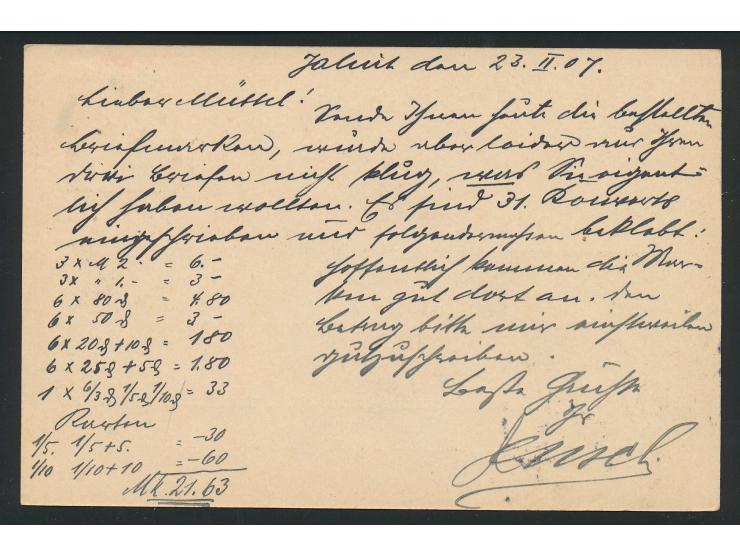 Jaluit den 23. II. 07.
Lieber Müttel!
Sende Ihnen heute die bestellten
Briefmarken, wurde aber leider aus Ihren
drei Briefen nicht klug, was Sie eigent=
lich haben wollten. Es sind 31. Kouverts
eingeschrieben und folgendermassen beklebt:
3 x M 2.- = 6.-
3 x " 1.- = 3-
6 x 80 ₰ = 4.80
6 x 50 ₰ = 3-
6 x 20 ₰ + 10 ₰ = 1.80
6 x 25 ₰ + 5 ₰ = 1.80
1 x 6/3 ₰ 1/5 ₰ 1/10 ₰ = 33
Karten
1/5. 1/5 + 5. = -30
1/10 1/10 + 10 = -60
Mk. 21.63
Hoffentlich kommen die Mar-
ken gut dort an. Den
Betrag bitte mir einstweilen
gutzuschreiben.
Beste Grüsse
Ihr